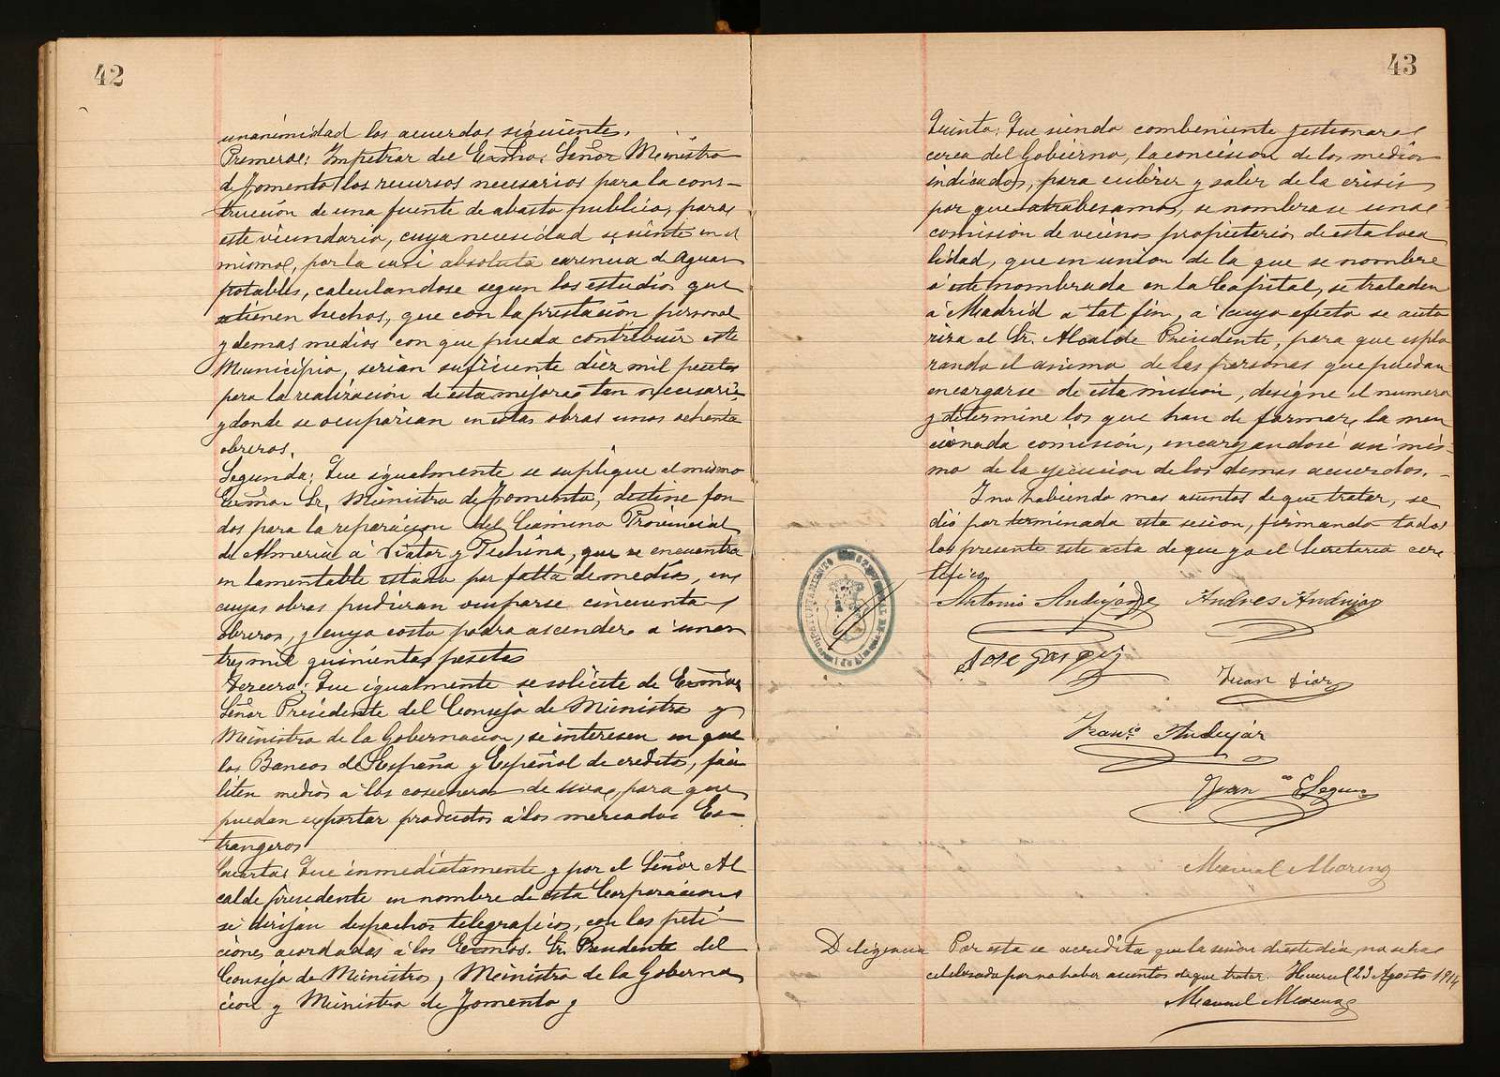 42
unanimidad los acuerdos siguientes.
Primeroe: Impetrar del Excmo. Señor Ministro
de Fomento los recursos necesarios para la cons-
trucción de una fuente de abasto publico, para
este vicundario, cuya necesidad se siente en el
mismo, por la casi absoluta carencia de aguas
potables, calculandose segun los estudios que
se tienen hechos, que con la prestación personal
y demas medios con que pueda contribuir este
Municipio, serian suficiente diez mil pesetas
para la realización de esta mejora tan necesaria,
y donde se ocuparian en estas obras unos ochenta
obreros.
Segunda: Que igualmente se suplique al mismo
Excmo Sr. Ministro de Fomento, destine fon-
dos para la reparacion del Camino Provincial
de Almeria á Viator y Pechina, que se encuentra
en lamentable estado por falta de medios, en
cuyas obras pudieran ocuparse cincuenta
obreros, y cuyo costo podra ascender á unas
tres mil quinientas pesetas
Tercero: Que igualmente se solicite de Excmo
Señor Presidente del Consejo de Ministros y
Ministro de la Gobernacion, se interesen en que
los Bancos de España y Español de credito, faci
liten medios á los cosecheros de uva, para que
puedan exportar productos á los mercados Es-
trangeros
Cuarta: Que inmediatamente y por el Señor Al
calde presidente en nombre de esta Corporacion
se dirijan despachos telegraficos, con las peti-
ciones acordadas á los Excmos. Sr. Presidente del
Consejo de Ministros, Ministro de la Goberna
cion y Ministro de Fomento y
43
Quinto: Que siendo combeniente gestionar
cerca del Gobierno, la concision de los medios
indicados, para cubrir y salir de la crisis
por que atrabesamos, se nombrase una
comision de vecinos propietarios de esta loca
lidad, que en union de la que se nombre
ó esté nombrada en la Capital, se trataden
á Madrid a tal fin, á cuyo efecto se auto
riza al Sr. Alcalde Presidente, para que esplo
rando el animo de las personas que puedan
encargarse de esta mision, designe el numero
y determine los que han de formar la men
cionada comisión, encargandose asi mis-
mo de la ejecucion de los demas acuerdos.-
I no habiendo mas asuntos de que tratar, se
dió por terminada esta sesion, firmando todos
los presente este acta de que yo el Secretario cer
tifico
Antonio Andújar Andres Andujar
Jose
Juan Diaz
Franco. Andújar
Juan
Manuel Moreno
Diligencia Por esta se acredita que la sesion de este dia, no se ha
celebrado por no haber asuntos de que tratar. Huercal 23 Agosto 1914
Manuel Moreno